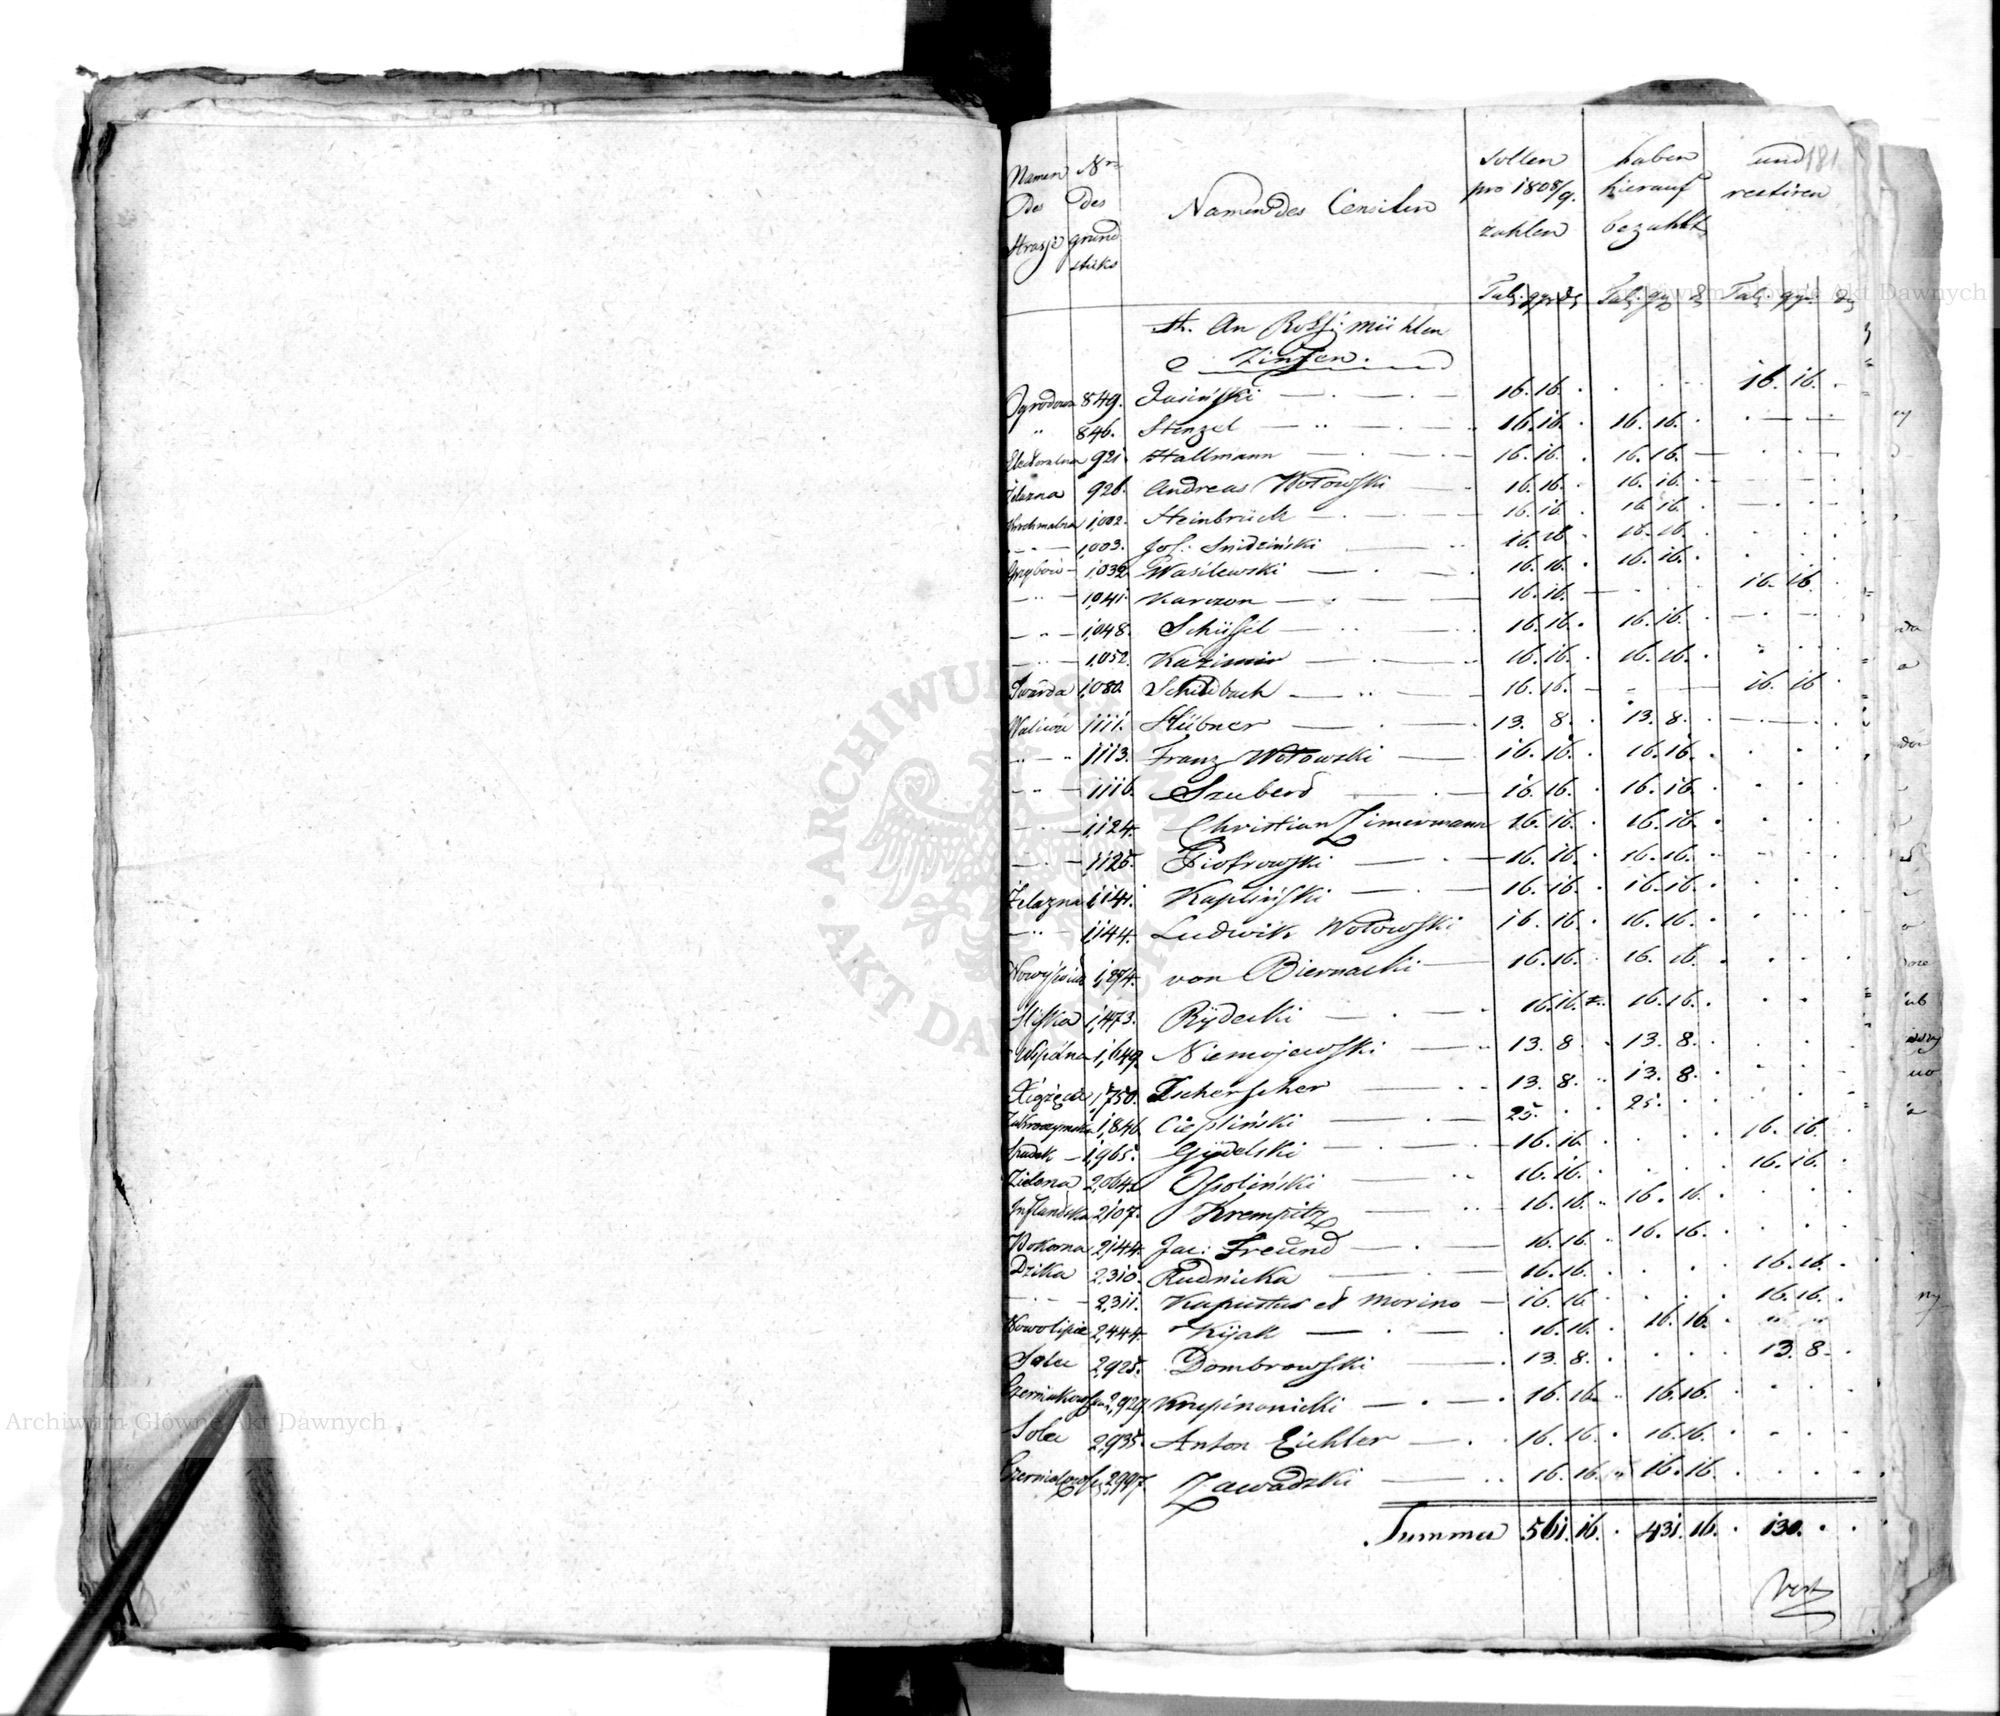 181
Namen des Strasse
Nro des grund stüks
Namen des Censiten
sollen pro 1808/9. zahlen
haben hierauf bezahlt
und restiren
Talr. ggr. d. Talr. ggr. d. Talr. ggr. d.
An Roß: mühlen
Zinsen.
Ogrodowa 849. Jasiński 16. 16. . . . . 16. 16. .
" 846. Stenzel 16. 16. . 16. 16. .
Electoralna 921. Hallmann 16. 16. . 16. 16.
Żelazna 926. Andreas Wołowski 16. 16. . 16. 16. .
Krochmalna 1,002. Steinbrück 16. 16. . 16. 16.
" 1,003. Jos: Snidziński 16. 16. . 16. 16. .
Grzybów 1,032. Wasilewski 16. 16. . 16. 16. .
" 1,041. Karczon 16. 16. . . . 16. 16.
" 1,048. Schüssel 16. 16. . 16. 16. .
" 1,052. Kazimir 16. 16. . 16. 16. .
Twarda 1,080. Schildbach 16. 16. 16. 16.
Waliców 1111. Hübner 13. 8. . 13. 8. .
" 1113. Franz Wołowski 16. 16. . 16. 16. .
" 1116. Szuberd 16. 16. . 16. 16. .
" 1,124. Christian Zimermann 16. 16. . 16. 16. .
" 1,125. Piotrowski 16. 16. . 16. 16. .
Żelazna 1,141. Kapliński 16. 16. . 16. 16. .
" 1,144. Ludwik Wołowski 16. 16. . 16. 16. .
1,274. von Biernacki 16. 16. . 16. 16. .
Sliska 1,473. Rÿdecki 16. 16. . 16. 16. .
Wspólna 1,649. Niemojewski 13. 8. . 13. 8. .
Xiążęca 1,750. Tscherscher 13. 8. . 13. 8. .
Zakroczymska 1,846. Ciepliński 25. . . 25. . .
1,965. Gÿdelski 16. 16. . . . . 16. 16. .
Zielona 2,064. Ossoliński 16. 16. . . . . 16. 16. .
Inflandska 2,107. Krempitz 16. 16. . 16. 16. .
Pokorna 2,144. Jac: Freünd 16. 16. . 16. 16. .
Dzika 2,310. Rudnicka 16. 16. . . . . 16. 16. .
" 2,311. Kapustas et Morino 16. 16. . . . . 16. 16. .
Nowolipie 2,444. Kÿak 16. 16. . 16. 16. .
Solec 2,925. Dombrowski 13. 8. . . . . 13. 8. .
2,929. Krupinonicki 16. 16. . 16. 16. .
Solec 2,935. Anton Eichler 16. 16. . 16. 16. .
2,997. Zawadzki 16. 16. . 16. 16. .
Summa 561. 16. . 431. 16. . 130. . .
Archiwum Główne Akt Dawnych
Archiwum Główne Akt Dawnych